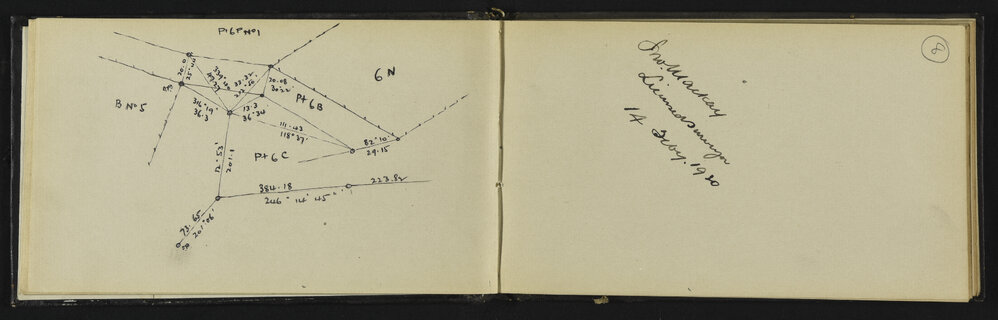 Pt 6 Pt No 1
6 N
B No 5
Pt 6 B
Pt 6 C
20.0
25° 44'
33.32
202° 50'
20.08
316° 19'
36.3
13.3
36° 34'
111.43
118° 37'
82° 10'
29.15
12° 53'
201.1
384.18
246° 14' 45"
223.82
73.65
201° 06'
8
Jno. Mackay
Licensed Surveyor
14 Feby. 1930